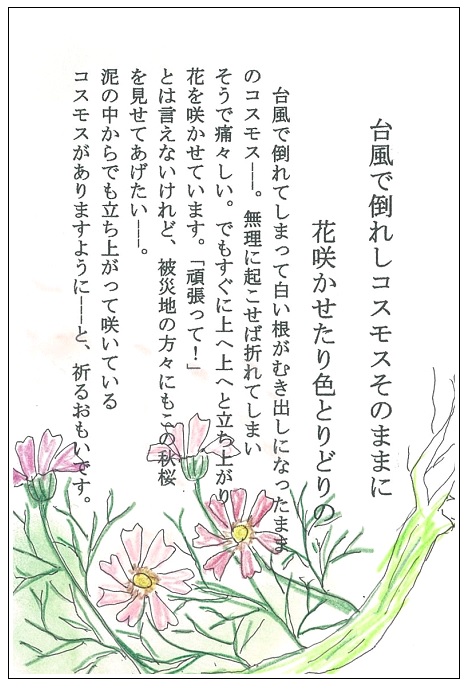 台風で倒れしコスモスそのままに
花咲かせたり色とりどりの
台風で倒れてしまって白い根がむき出しになったまま
のコスモス――。無理に起こせば折れてしまい
そうで痛々しい。でもすぐに上へ上へと立ち上がり
花を咲かせています。「頑張って！」
とは言えないけれど、被災地の方々にもこの秋桜
を見せてあげたい――。
泥の中からでも立ち上がって咲いている
コスモスがありますように――と、祈るおもいです。